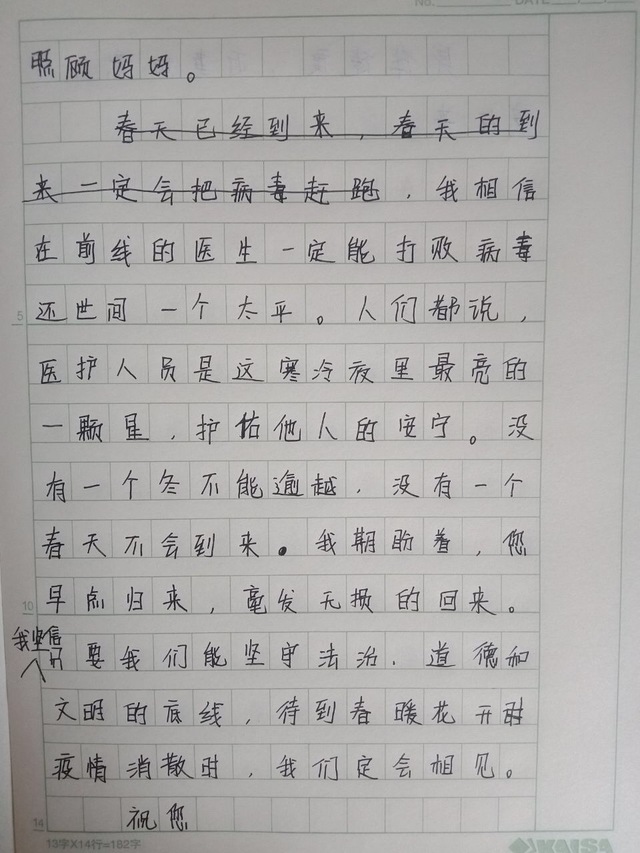 No. DATE
照顾妈妈。
春天已经到来，春天的到
来一定会把病毒赶跑，我相信
在前线的医生一定能打败病毒
还世间一个太平。人们都说，
5
医护人员是这寒冷夜里最亮的
一颗星，护佑他人的安宁。没
有一个冬不能逾越，没有一个
春天不会到来。我期盼着，您
早点归来，毫发无损的回来。
10
我坚信
只要我们能坚守法治、道德和
文明的底线，待到春暖花开时
疫情消散时，我们定会相见。
祝您
14
13字X14行=182字
KAISA